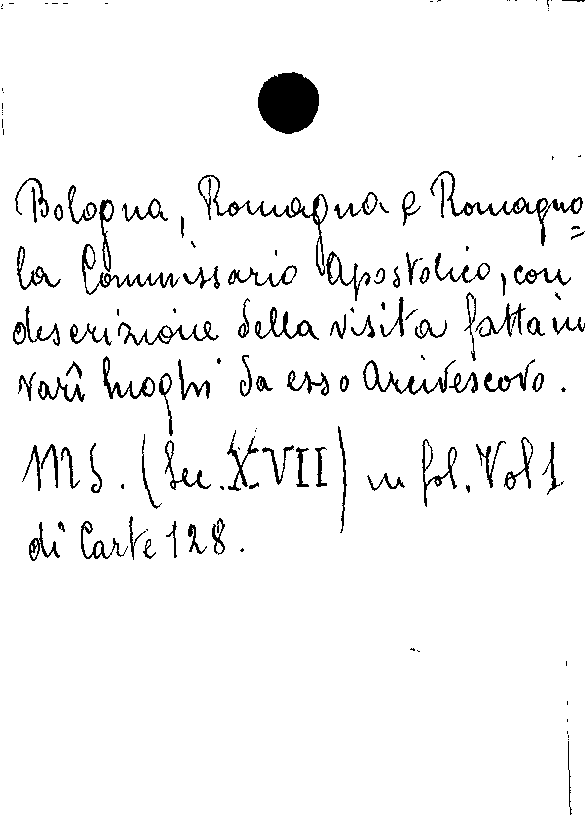 Bologna, Romagna e Romagno=
la Commissario Apostolico, con
descrizione della visita fatta in
varî luoghi da esso Arcivescovo.
MS. (Sec. XVII) in fol. Vol 1
di Carte 128.